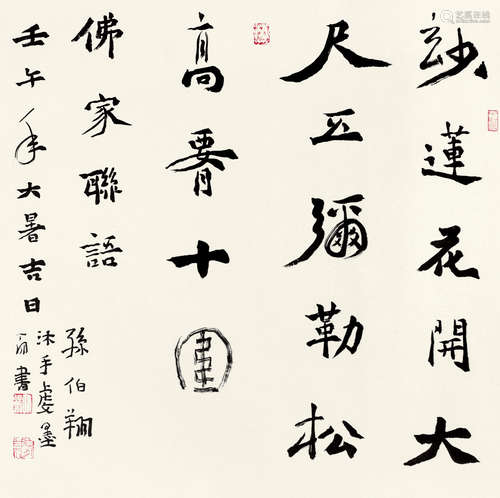 玅蓮花開大
尺五彌勒松
高腰十圍
佛家聯語
壬午年大暑吉日
孫伯翔
沐手墨
書
艺狐在线